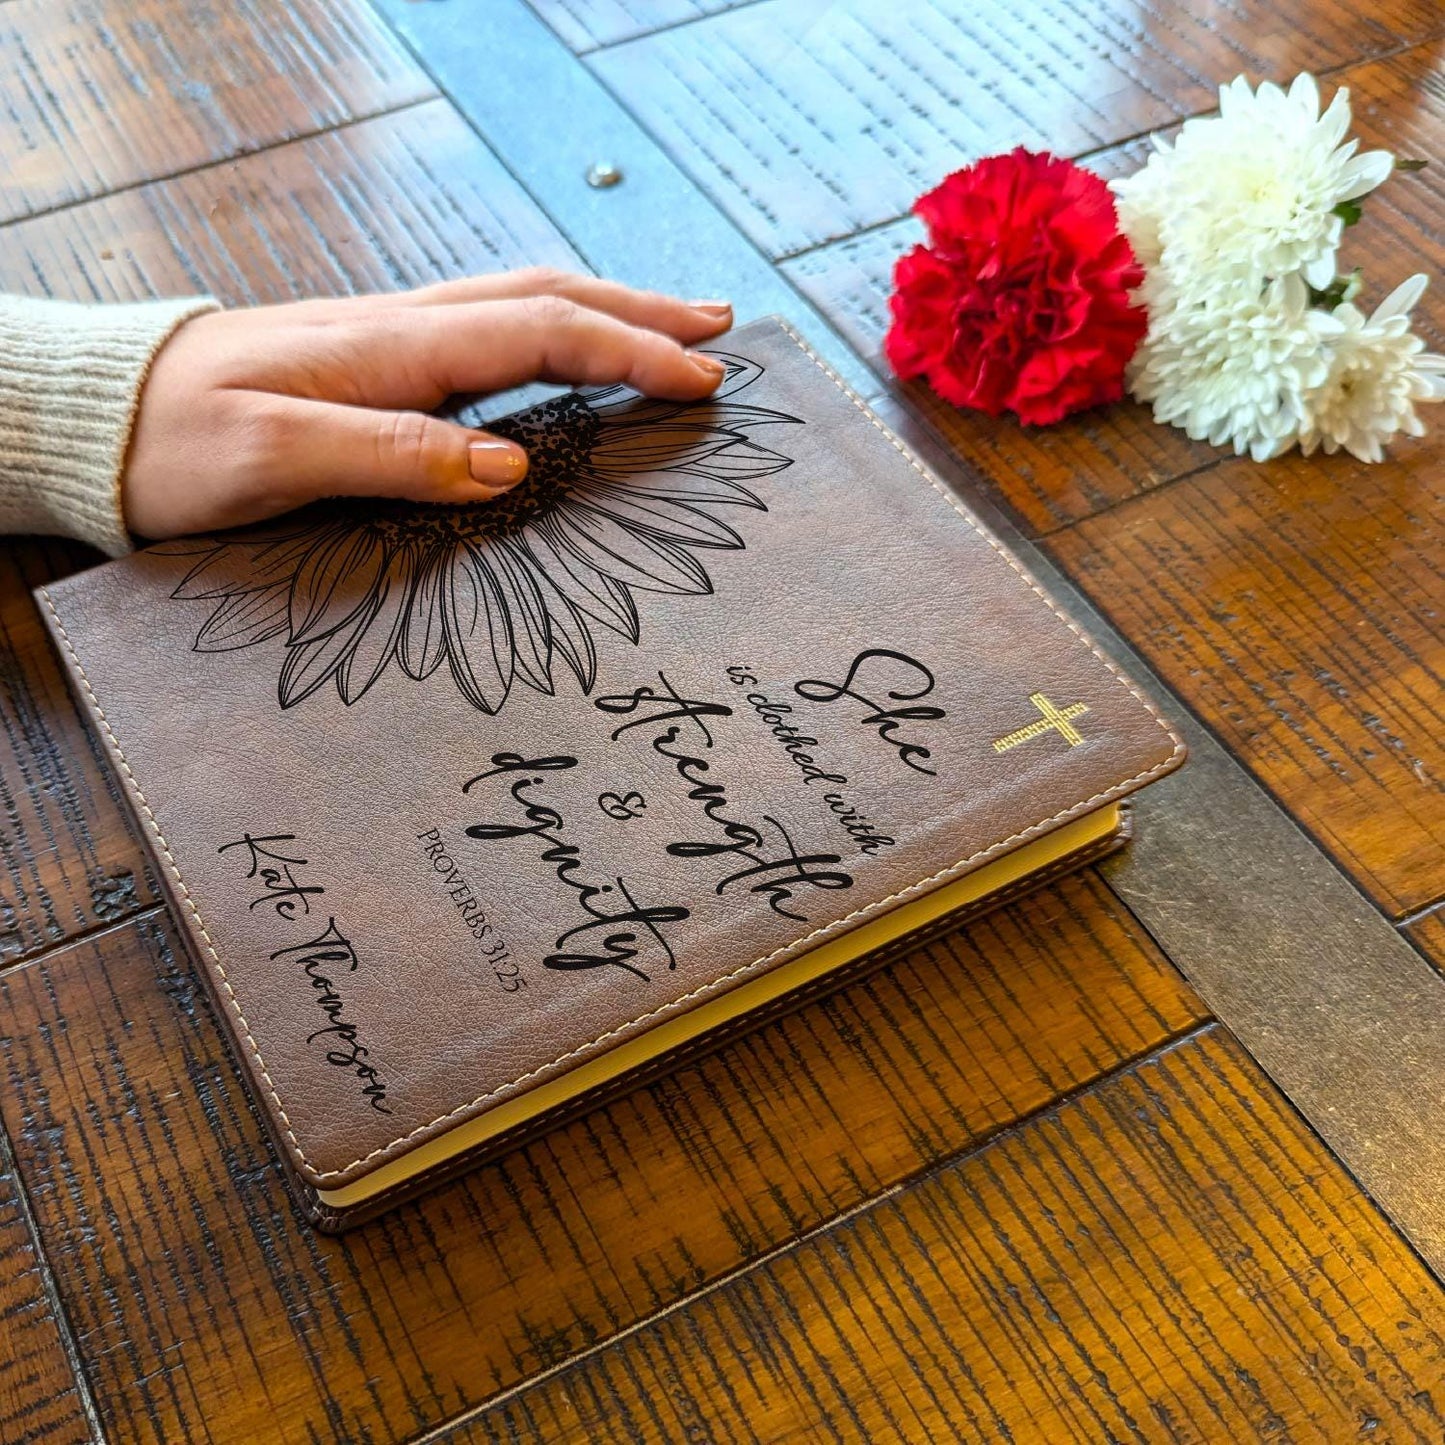 She
is clothed with
strength
&
dignity
PROVERBS 31:25
Kate Thompson